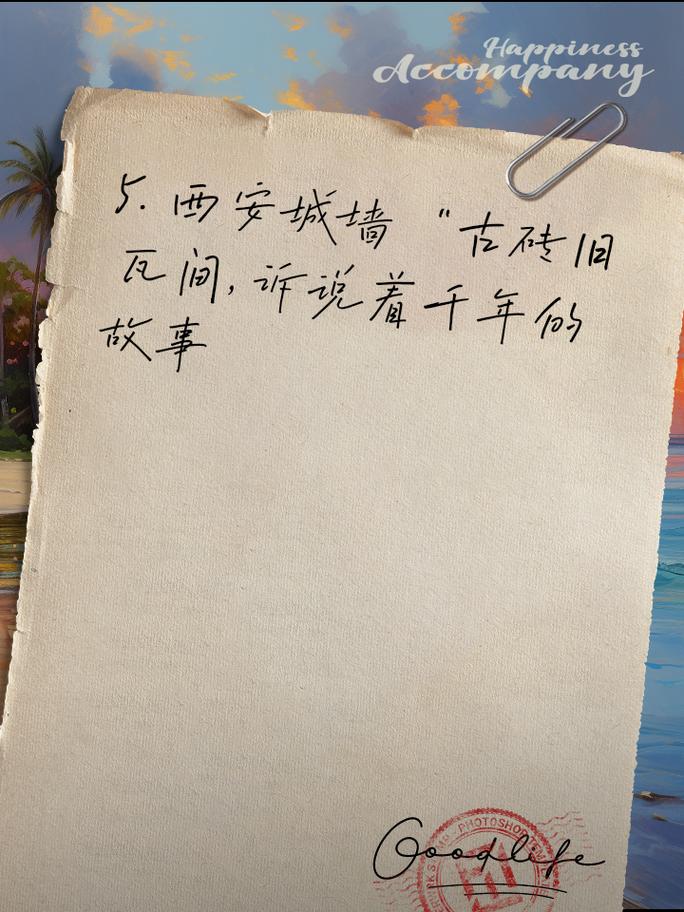 Happiness
Accompany
5. 西安城墙 "古砖旧
瓦间,诉说着千年的
故事
PHOTOSHOP
Goodlife